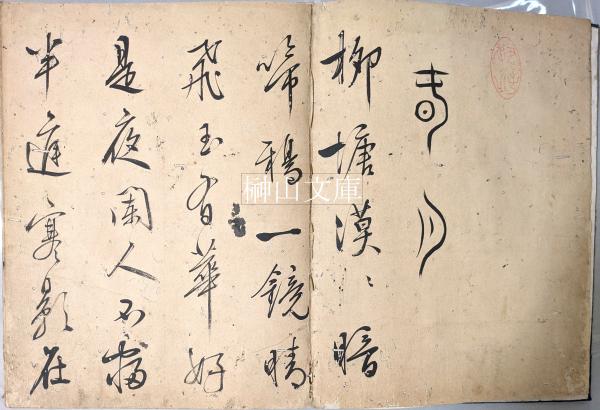 春月
柳塘漠々暗
啼鴉一鏡晴
飛玉有華好
是夜闌人不寐
半庭寒影在
榊山文庫